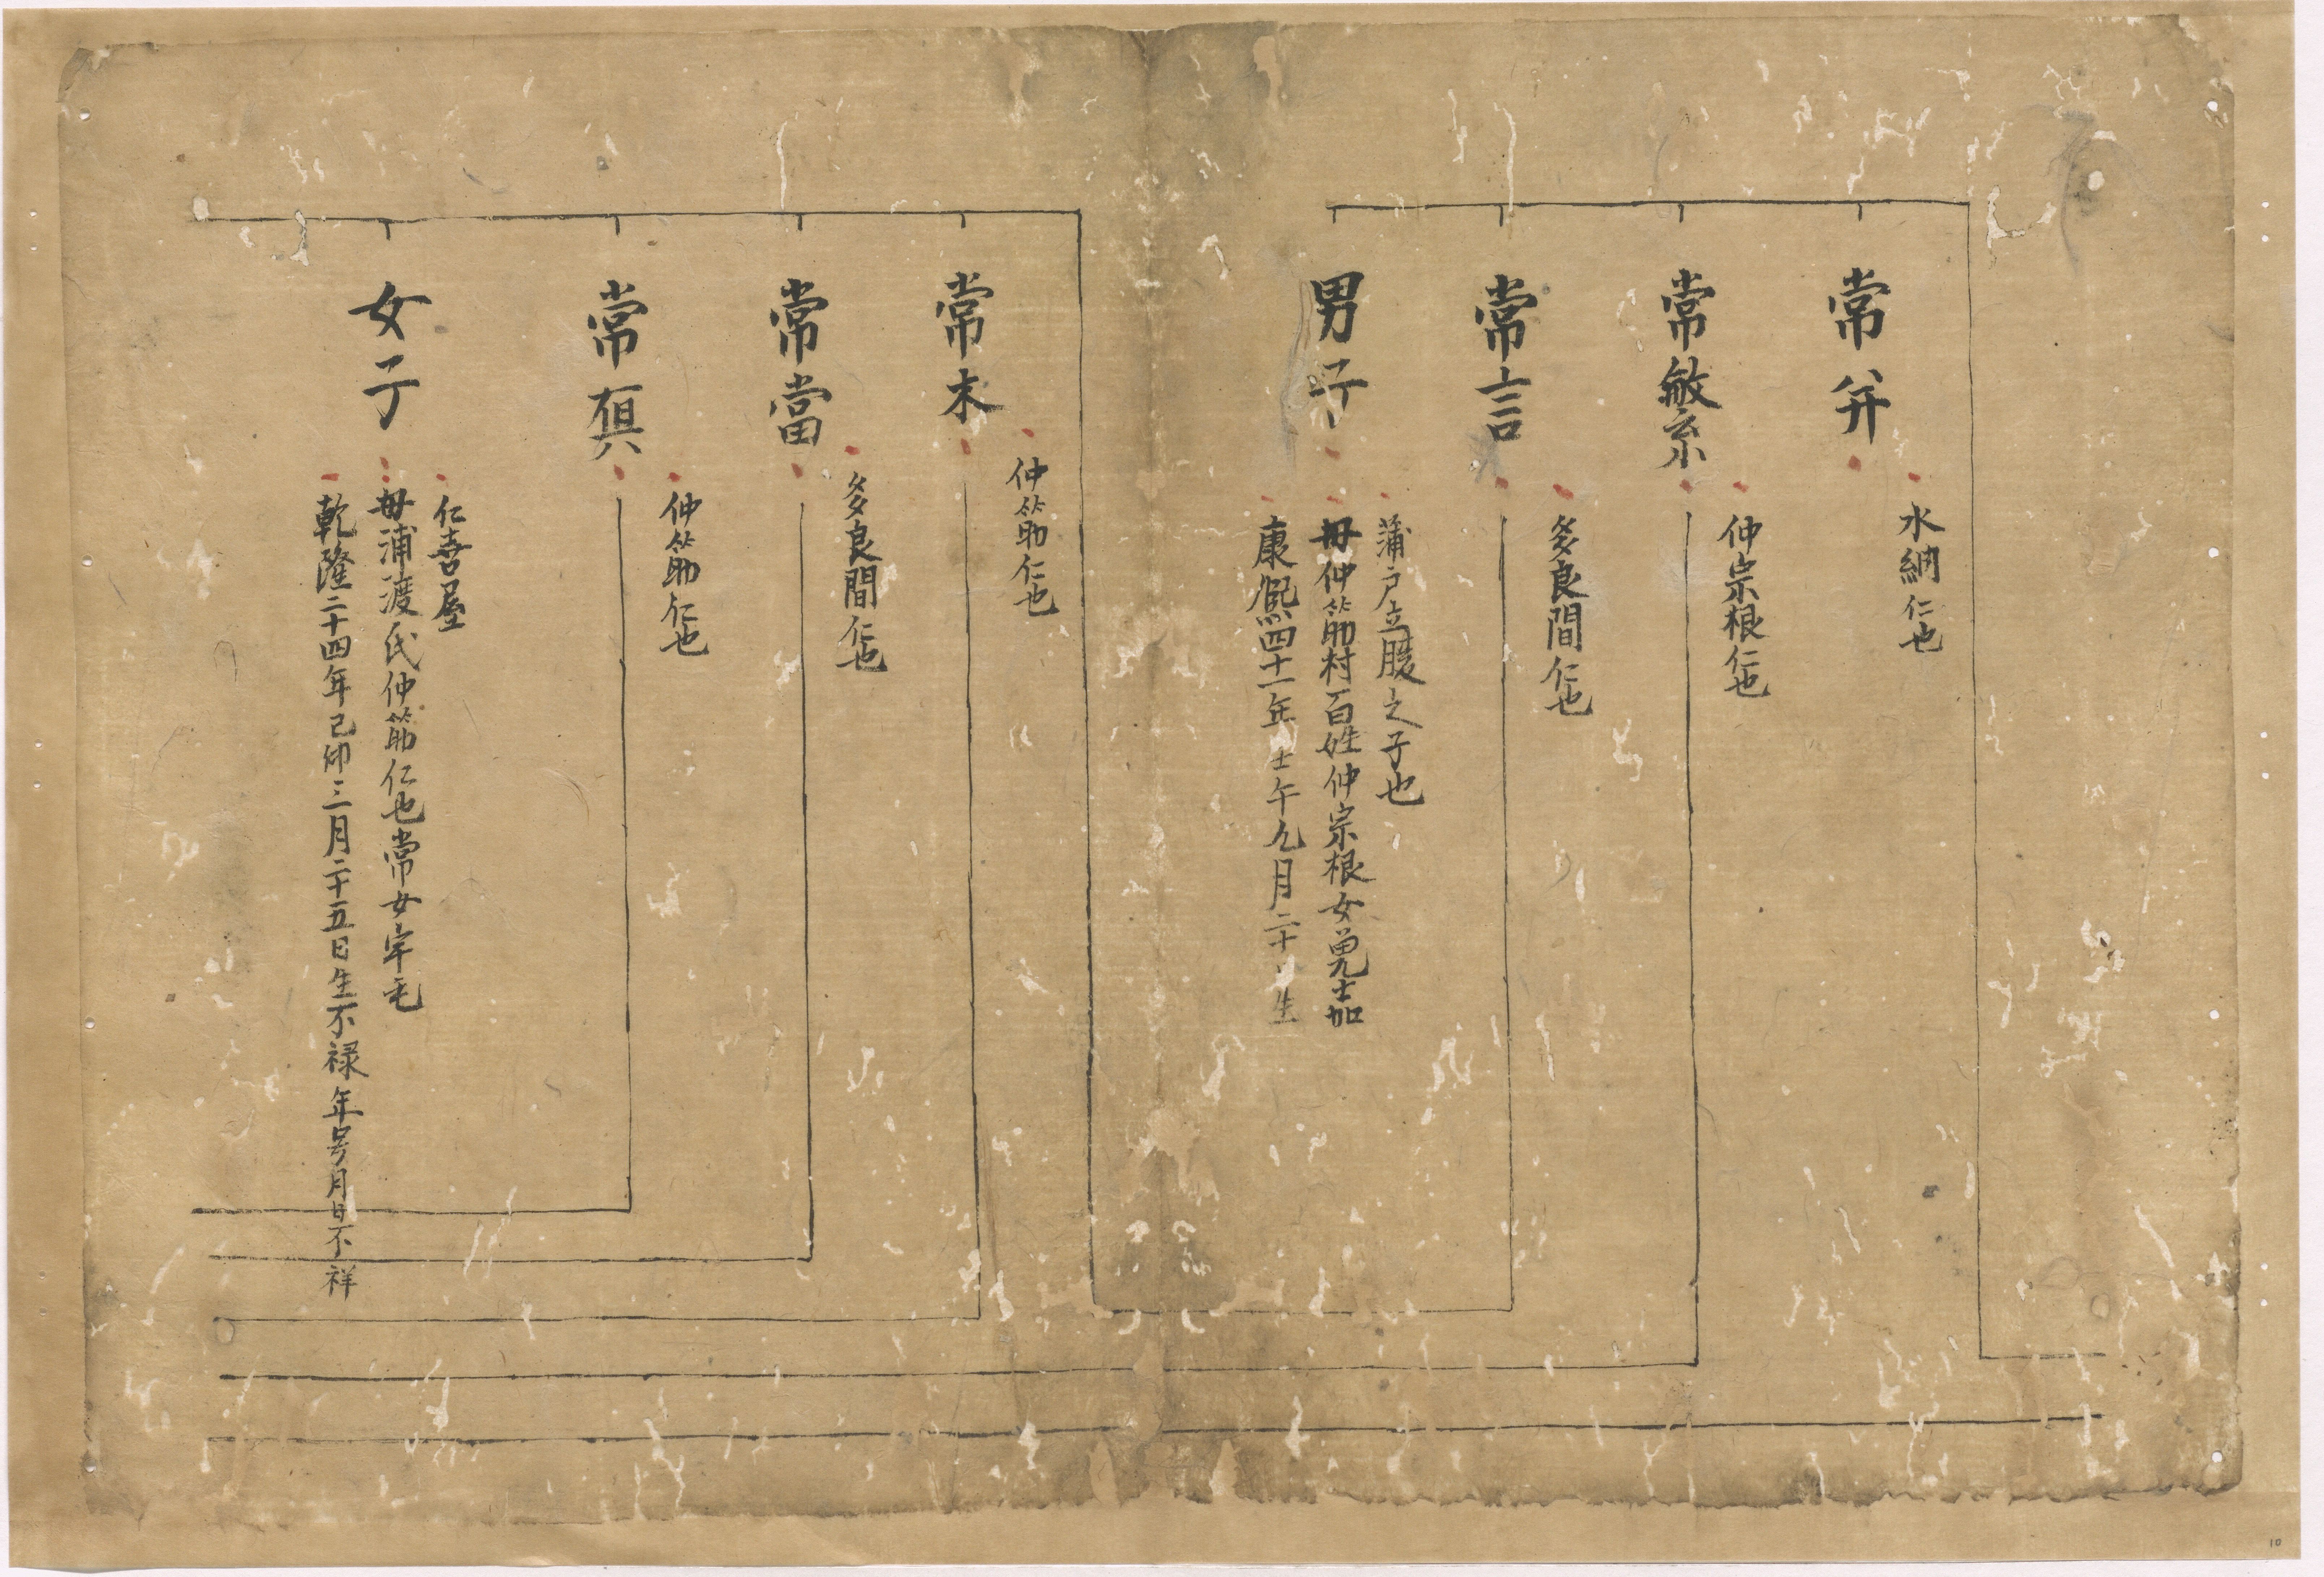 常并
水納仁也
常繁
仲宗根仁也
常言
多良間仁也
男子
蒲戸立腹之子也
母仲筋村百姓仲宗根女兇士加
康熙四十一年壬午九月二十 生
常末
仲筋仁也
常當
多良間仁也
常
仲筋仁也
女子
仁喜屋
母浦渡氏仲筋仁也常女宇毛
乾隆二十四年己卯三月二十五日生不禄年号月日不祥
10